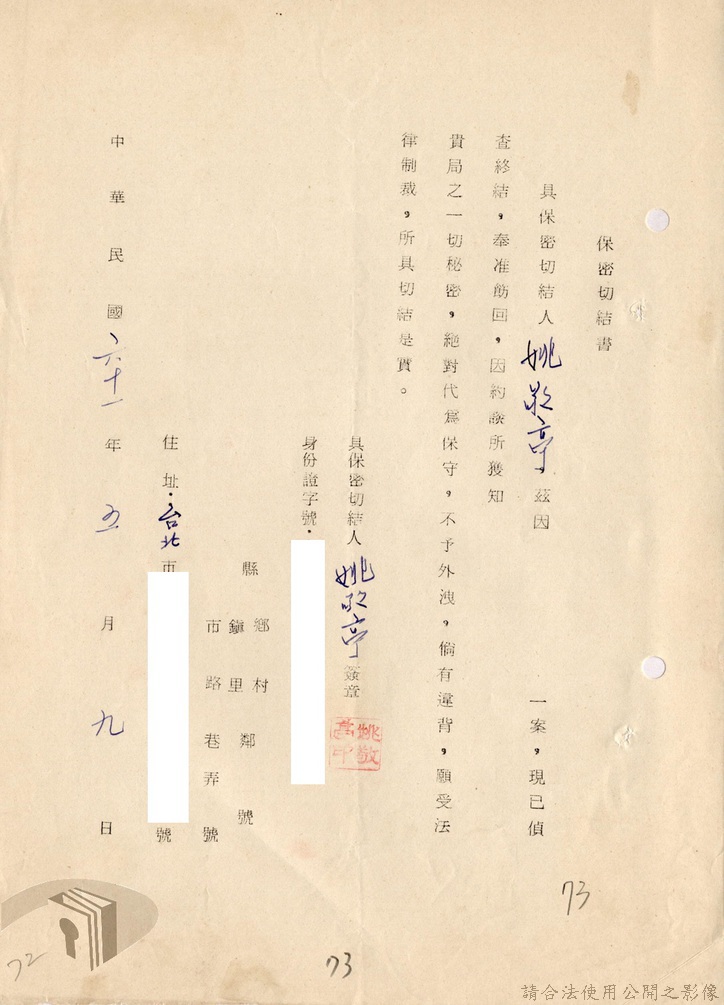 保密切結書
具保密切結人姚敬亭茲因 一案,現已偵
查終結,奉准飭回,因約談所獲知
貴局之一切秘密,絕對代為保守,不予外洩,倘有違背,願受法
律制裁,所具切結是實。
具保密切結人姚敬亭簽章
身份證字號.
縣 鄉鎮 村里 鄰 號
市 路 巷 弄 號
住址.台北市 號
中華民國六十一年五月九日
73
73
72
請合法使用公開之影像